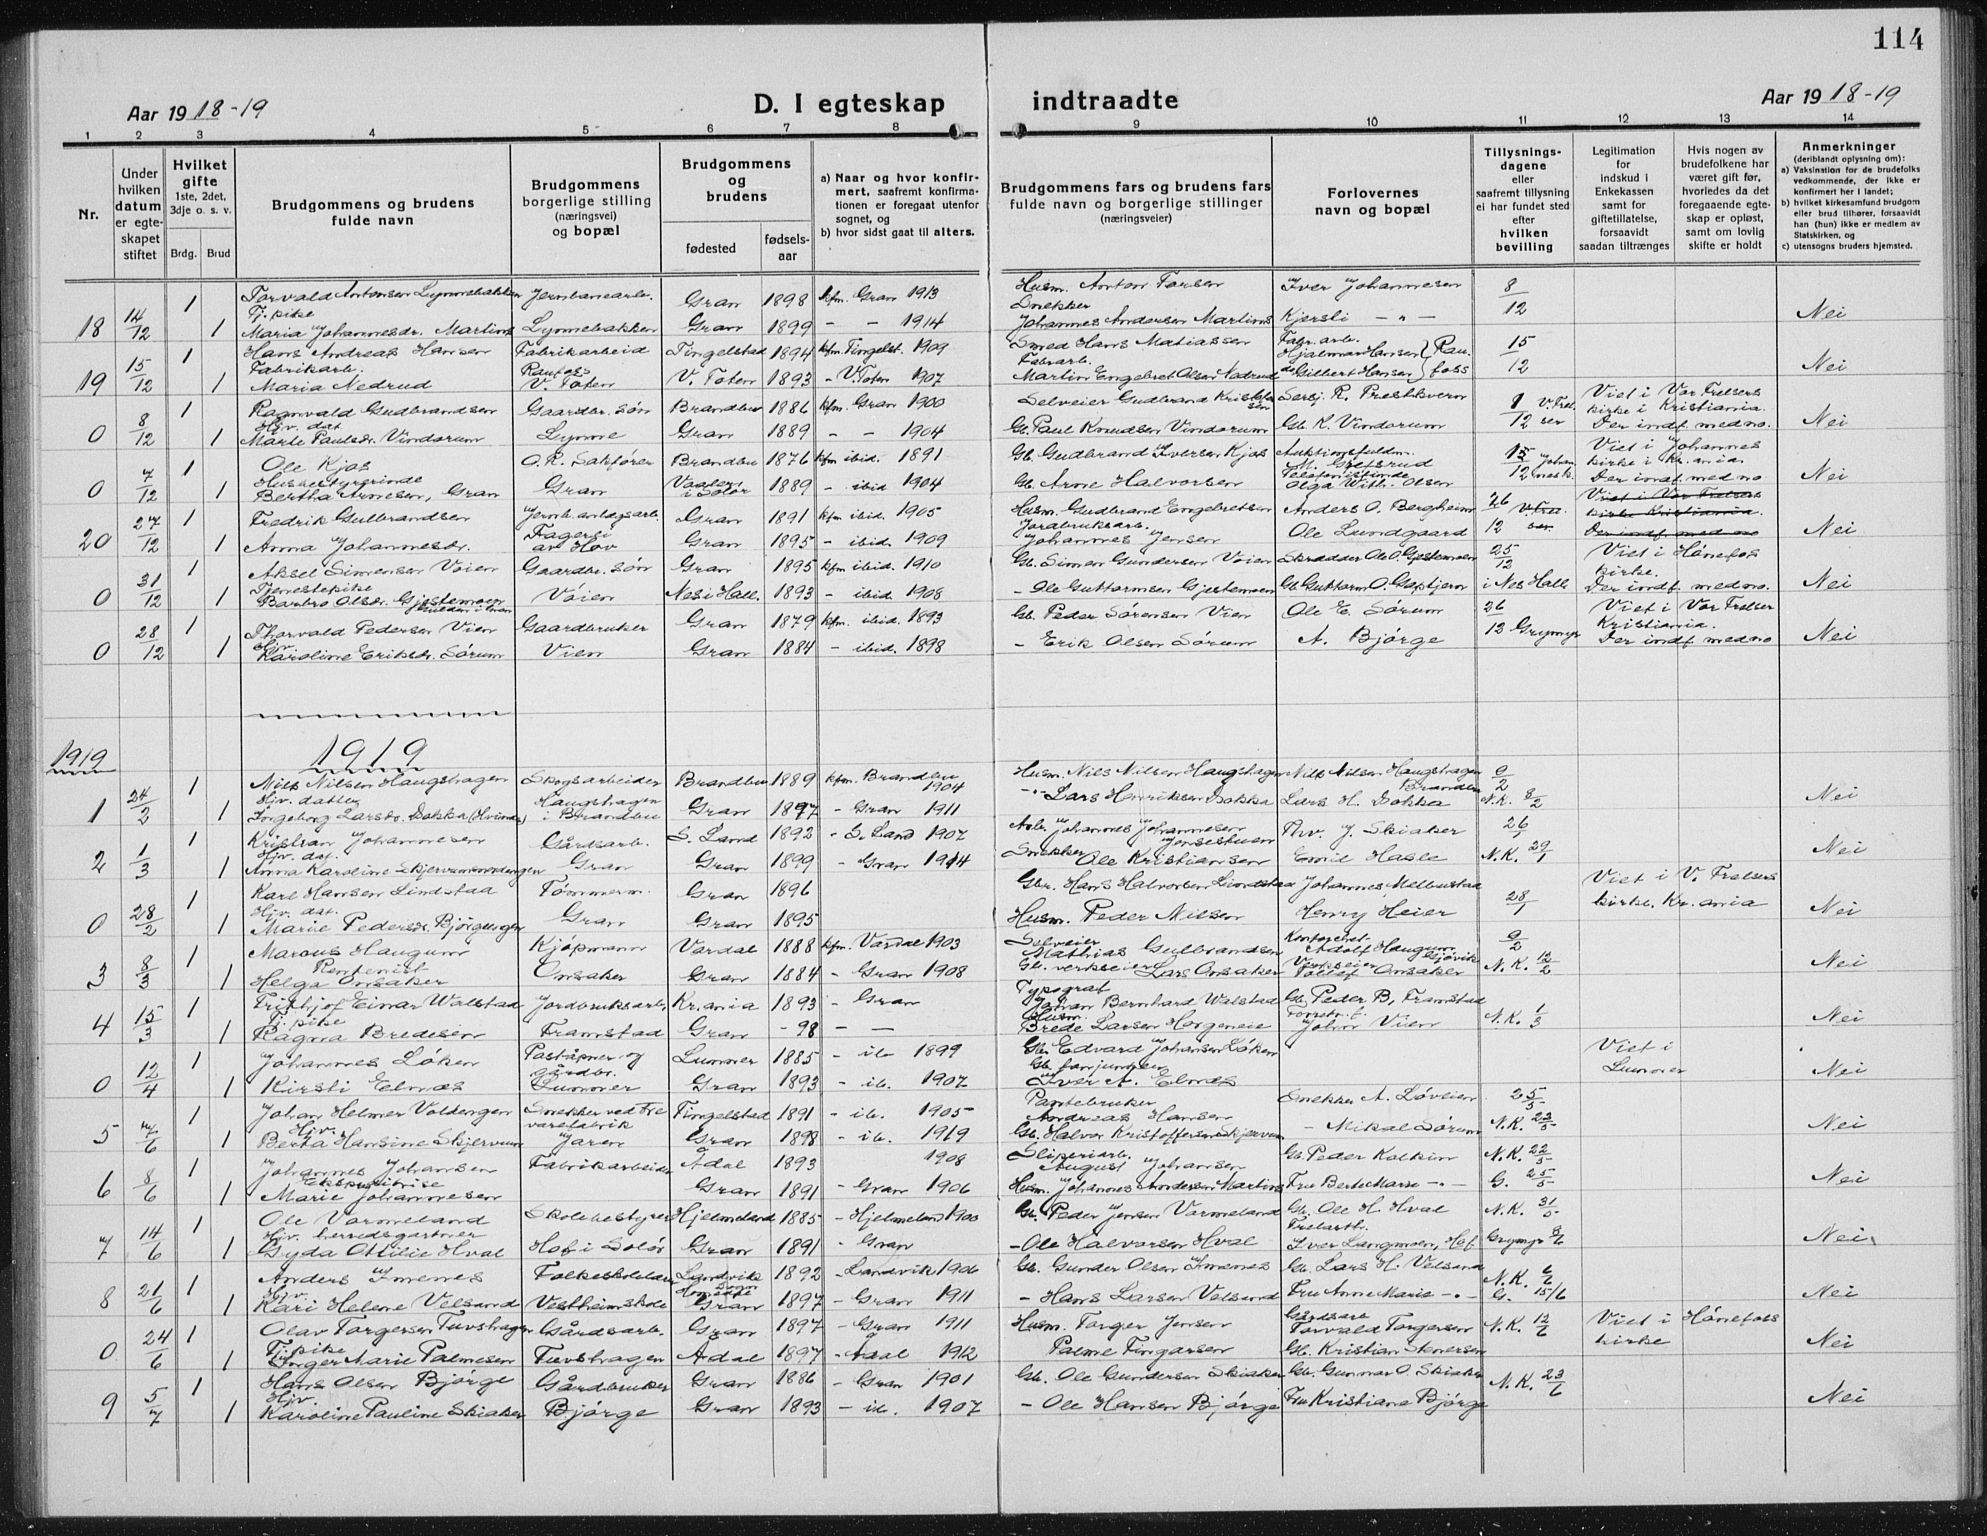 114
Aar 1918-19
D. I egteskap indtraadte
Aar 1918-19
1 2 3 4 5 6 7 8 9 10 11 12 13 14
Nr.
Under hvilken datum er egteskapet stiftet
Hvilket gifte 1ste, 2det, 3dje o. s. v.
Brdg. Brud
Brudgommens og brudens fulde navn
Brudgommens borgerlige stilling (næringsvei) og bopæl
Brudgommens og brudens
fødested
fødselsaar
a) Naar og hvor konfirmert, saafremt konfirmationen er foregaat utenfor sognet, og
b) hvor sidst gaat til alters.
Brudgommens fars og brudens fars fulde navn og borgerlige stillinger (næringsveier)
Forlovernes navn og bopæl
Tillysningsdagene eller saafremt tillysning ei har fundet sted efter hvilken bevilling
Legitimation for indskud i Enkekassen samt for giftetillatelse, forsaavidt saadan tiltrænges
Hvis nogen av brudefolkene har været gift før, hvorledes da det foregaaende egteskap er opløst, samt om lovlig skifte er holdt
Anmerkninger (deriblandt oplysning om):
a) Vaksination for de brudefolks vedkommende, der ikke er konfirmert her i landet;
b) hvilket kirkesamfund brudgom eller brud tilhører, forsaavidt han (hun) ikke er medlem av Statskirken, og
c) utensogns bruders hjemsted.
Torvald Antonsen Lynnebakken Jernbanearb. Gran 1898 kfm. Gran 1913 Husm. Anton Larsen Iver Johannesen 8/12
18 14/12 1 1 Tj. pike Maria Johannesdr. Martins Lynnebakken Gran 1899 - - 1914 Snekker Johannes Andersen Martins Kjersti - " - Nei
Hans Andreas Hansen Fabrikarbeid Tingelstad 1894 kfm. Tingelst. 1909 Smed Hans Matiassen Fabr. arb. Hjalmar Hansen Raufoss 15/12
19 15/12 1 1 Fabrikarb. Maria Nedrud Raufoss V. Toten V. Toten 1893 - V. Toten 1907 Fabrarb. Martin Engebret Olsen Nedrud do Gilbert Hansen Nei
Ragnvald Gudbrandsen Gaardbr. søn Brandbu 1886 kfm. Gran 1900 Selveier Gudbrand Kristofersen Sersj. R. Prestkvern 1/12 V. Frelser Viet i Vor Frelsers kirke i Kristiania.
0 8/12 1 1 Hjv. dat Marte Paulsdr. Vindorum Lynne Gran 1889 - - 1904 Gb. Paul Knudsen Vindorum Gb. K. Vindorum Der indf. med no. Nei
Ole Kjos O. R. Sakfører Brandbu 1876 kfm ibid. 1891 Gb. Gudbrand Iversen Kjos Auktionsfuldm. M. 15/12 Viet i Johannes kirke i Kr.ania
0 7/12 1 1 Husbestyrerinde Bertha Arnesen, Gran Gran Vaaler i Solør 1889 - ibid 1904 Gb. Arne Halvorsen Telefonistinde Olga Wilh. Olsen Der indf. med no Nei
Fredrik Gulbrandsen Jernb. anlægsarb. Gran 1891 kfm. ibid. 1905 Husm. Gudbrand Engebretsen Anders O. Bergheim 26/12 Viet i Vor Frelsers kirke Kristiania.
20 27/12 1 Anna Johannesdr. Fagerli av Hov Gran 1895 - ibid. 1909 Jordbruksarb. Johannes Jensen Ole Lundgaard Der indf. med no Nei
Aksel Simensen Voien Gaardbr. søn Gran 1895 kfm ibid. 1910 Gb. Simen Gundersen Voien Skrædder Ole O. Gjestemoen 25/12 Viet i Hønefos kirke.
0 31/12 1 1 Tjenestepike Barbro Olsdr. Gjestemoen Voien Nes i Hall. 1893 - ibid. 1908 - Ole Guttormsen Gjestemoen Gb. Guttorm O. i Nes Hall. Der indf. med no. Nei
Thorvald Pedersen Vien Gaardbruker Gran 1879 kfm. ibid. 1893 Gb. Peder Sørensen Vien Ole E. Sørum 26/12 Viet i Vor Frelser Kristiania.
0 28/12 1 1 Hjv. Karoline Eriksdr. Sørum Vien Gran 1884 - ibid. 1898 - Erik Olsen Sørum A. Bjørge Der indf. med no Nei
1919 1919
Nils Nilsen Haugshagen Skogsarbeider Brandbu 1889 kfm. Brandbu 1904 Husm. Nils Nilsen Haugshagen Nils Nilsen Haugshagen Brandbu 9/2
1 24/2 1 1 Hjv. datter Ingeborg Larsdr. Dokka (Hvinden) Haugshagen i Brandbu Gran 1897 - Gran 1911 - " - Lars Henriksen Dokka Lars H. Dokka N.K. 8/2 Nei
Kristian Johannesen Gårdsarb. S. Land 1892 - S. Land 1907 Arb. Johannes Johannesen Jensestuen Arv. J. Skiaker 26/1
2 1/3 1 1 Hjv. dat. Anna Karoline Gran Gran 1899 - Gran 1914 Snekker Ole Kristiansen Emil Hasle N.K. 29/1 Nei
Karl Hansen Lindstad Tømmerm. Gran 1896 Gbr. Hans Halvorsen Lindstad Johannes Melbustad Viet i V. Frelsers
0 28/2 1 1 Hjv. dat. Marie Pedersdr. Bjørgengen Gran Gran 1895 Husm. Peder Nilsen Henry Heier 28/1 kirke, Kr.ania Nei
Marcus Haugum Kjøpmann Vardal 1888 kfm. Vardal 1903 Selveier Mathias Gulbrandsen Kontorchef. Adolf Haugum Gjøvik 9/2
3 8/3 1 1 Rentenist Helga Onsaker Onsaker Gran 1884 - Gran 1908 Gb. verkseier Lars Onsaker Verkseier Tollef Onsaker N.K. 12/2 Nei
Fritjof Einar Walstad Jordbruksarb. Kr.ania 1893 - Gran Typograf Johan Bernhard Walstad Gb. Peder B. Framstad
4 15/3 1 1 Tj. pike Ragna Bredesen Framstad Gran - 98 - - Husm. Brede Larsen Horgeneie John Vien N.K. 1/3 Nei
Johannes Løken Poståpner og gårdbr. Lunner 1885 - ib 1899 Gb. Edvard Johansen Løken Viet i Lunner
0 12/4 1 1 Kirsti Elnæs Lunner Gran 1893 - ib. 1907 Gb. fanjunker Iver A. Elnes Nei
Johan Helmer Voldengen Snekker ved Trevarefabrik Tingelstad 1891 - ib. 1905 Pantebruker Andreas Hansen Snekker A. Løveien 25/5
5 7/6 1 1 Hjv. Berta Hansine Skjervum Jaren Gran 1898 - ib. 1919 Gb. Halvor Kristoffersen Skjervum - Mikal Sørum N.K. 23/5 Nei
Johannes Johansen Fabrikarbeider Ådal 1893 1908 Sliperiarb. August Johansen Gb. Peder Kolkin N.K. 22/5
6 8/6 1 1 Ekspeditrise Marie Johannesen Gran 1891 - Gran 1906 Husm. Johannes Andersen Martins Fru Berte Marie - " - G. 25/5 Nei
Ole Varmeland Skolebestyrer Hjelmeland 1885 - Hjelmeland 1900 Gb. Peder Jensen Varmeland Gb. Ole H. Hval N.K. 31/5
7 14/6 1 1 Hjv. herredsgartner Gyda Otilie Hval Hof i Solør Gran 1891 - Gran - Ole Halvorsen Hval Iver Langmoen, Hof 8/6 Nei
Anders Imenes Folkeskolelærer Landvik 1892 - Landvik 1906 Gb. Gunder Olsen Imenes Gb. Lars H. Velsand N.K. 6/6
8 21/6 1 1 Hjv. Kari Helene Velsand Vestheimskole Gran 1897 - Gran 1911 - Hans Larsen Velsand Fru Anne Marie - " - G. 15/6 Nei
Olav Torgersen Tuvshagen Gårdsarb. Gran 1897 - Gran 1911 Husm. Torger Jensen Gårdsarb Torvald Torgersen N.K. 12/6 Viet i Hønefoss kirke
0 24/6 1 1 Tj. pike Inger Marie Palmesen Tuvshagen Ådal 1897 - Ådal 1912 Palme Fingarsen Gb. Kristian Stenersen Nei
Hans Olsen Bjørge Gårdbruker Gran 1886 - Gran 1901 Gb. Ole Gundersen Skiaker Gb. Gunnar O. Skiaker N.K. 23/6
9 5/7 1 1 Hjv. Karoline Pauline Skiaker Bjørge Gran 1893 - ib. 1907 - Ole Hansen Bjørge Fru Kristiane Bjørge Nei